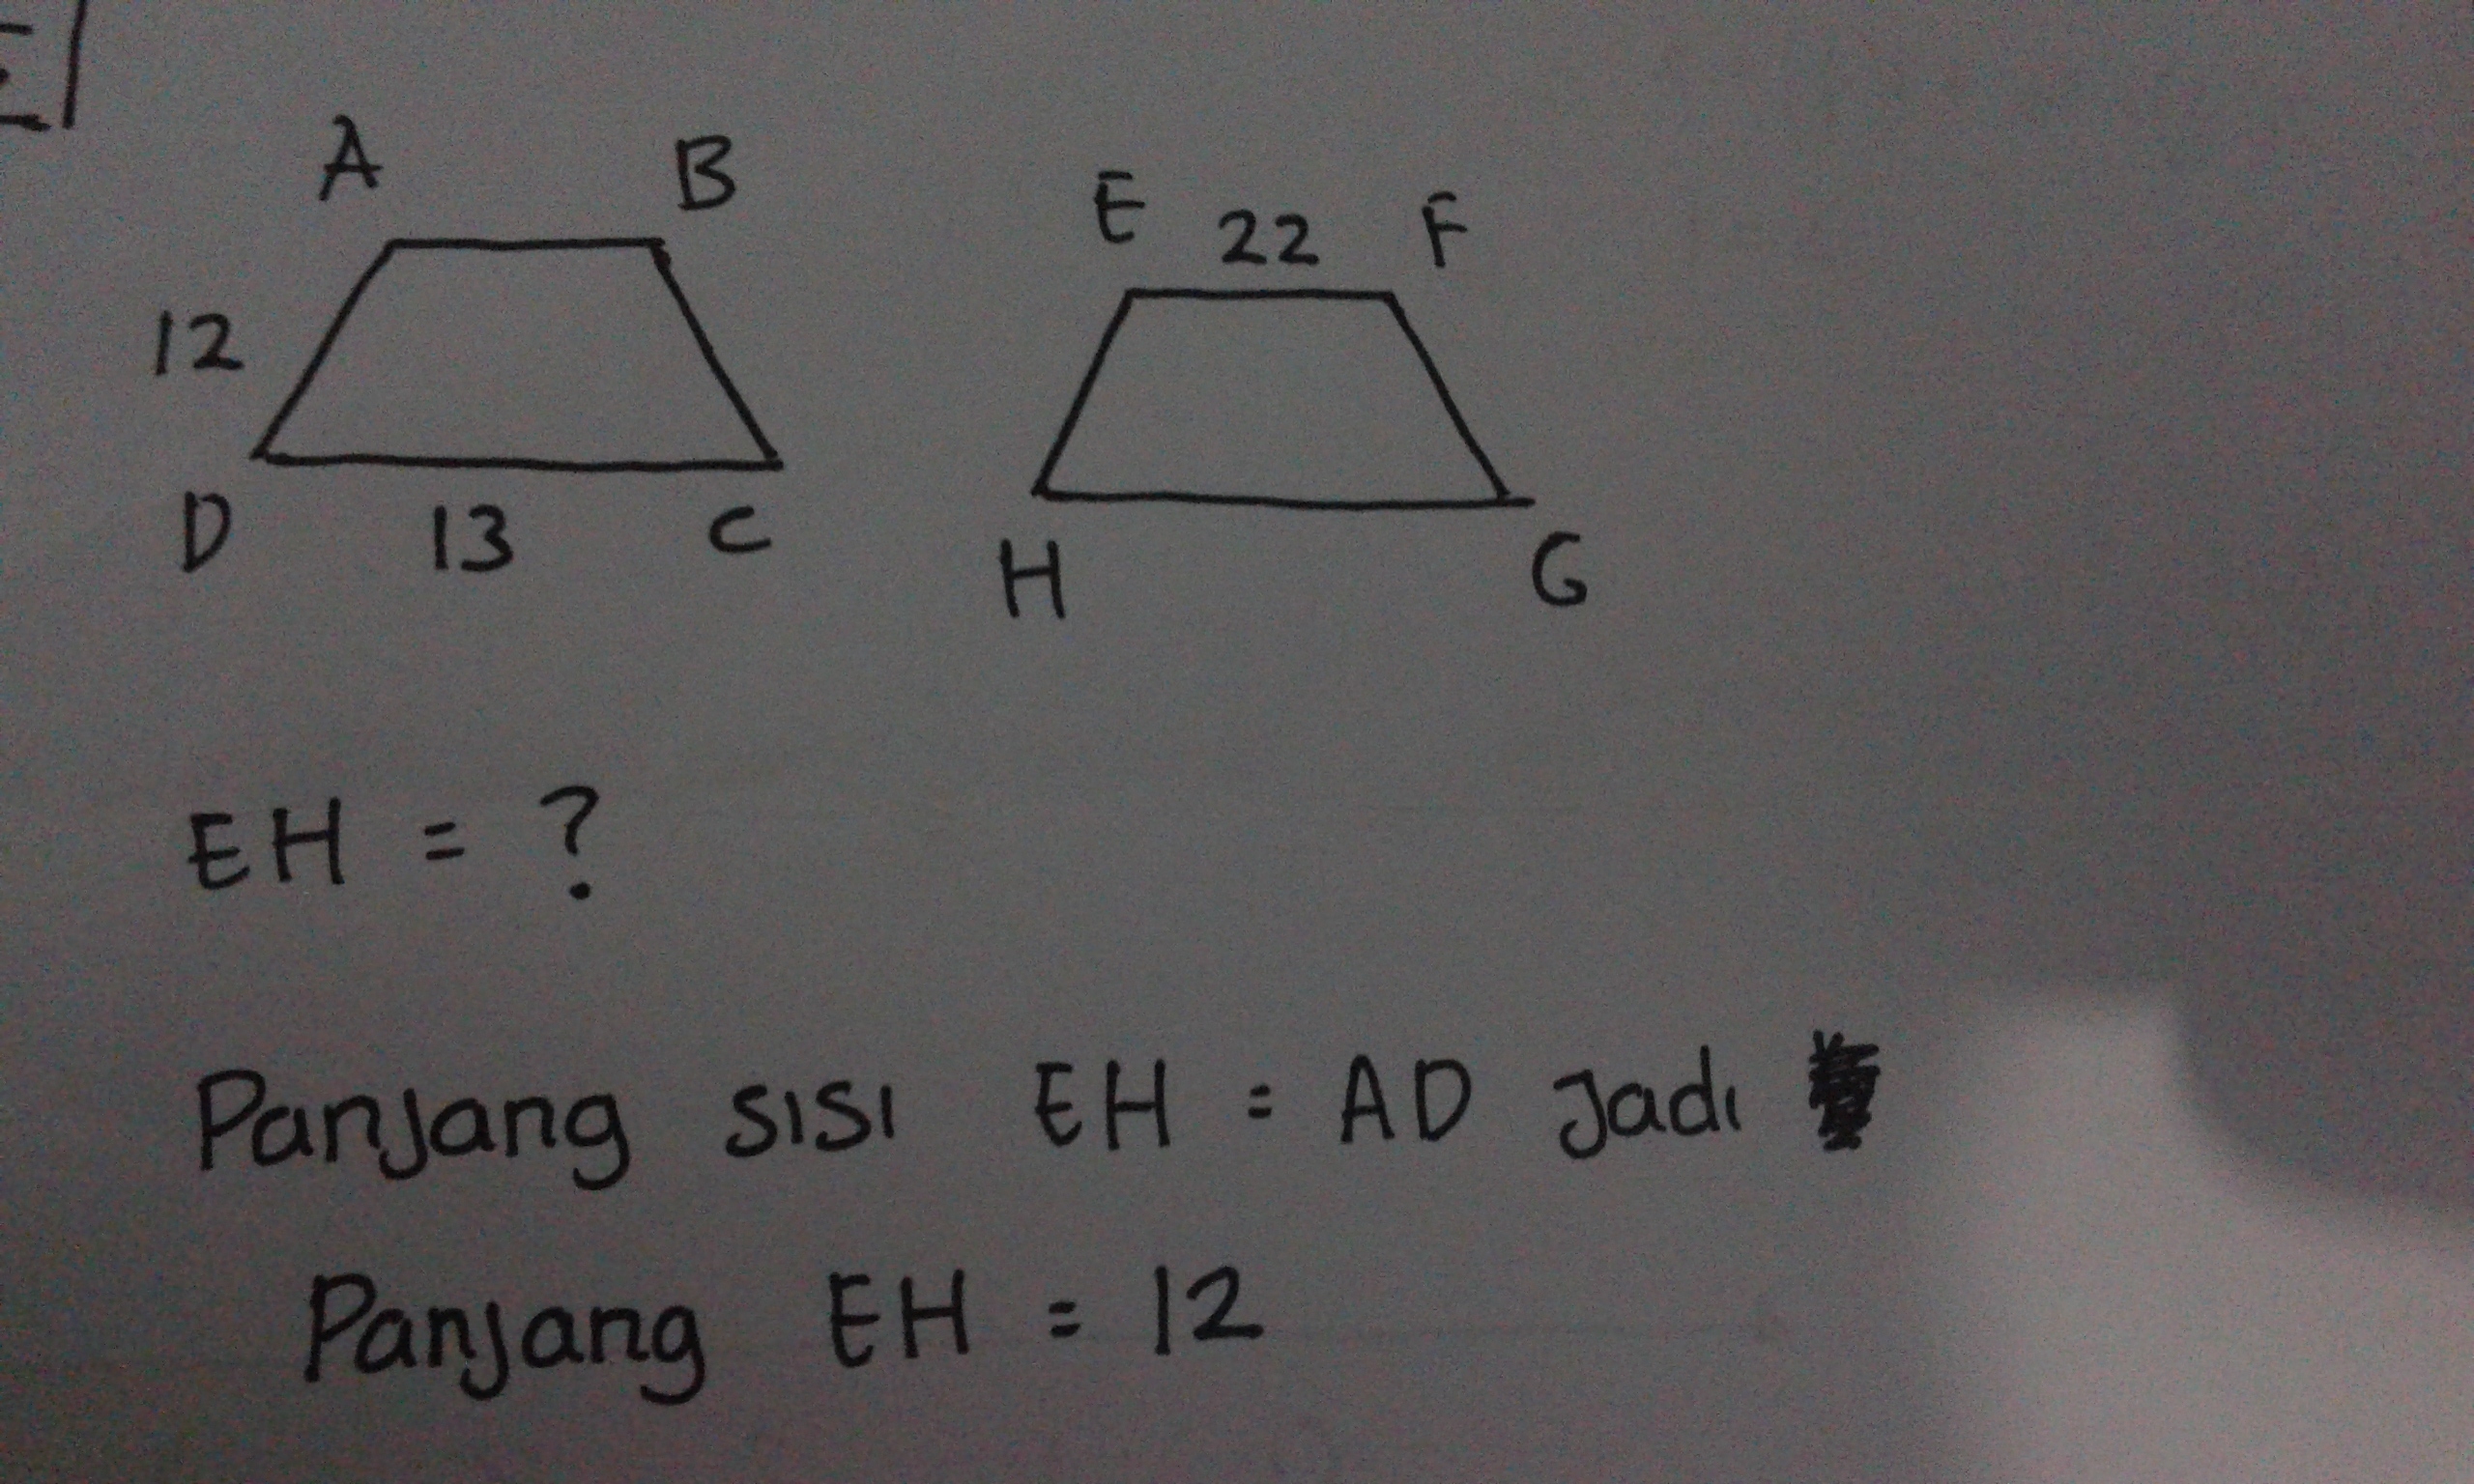 A B
E 22 F
12
D 13 C
H G
EH = ?
Panjang sisi EH = AD Jadi
Panjang EH = 12